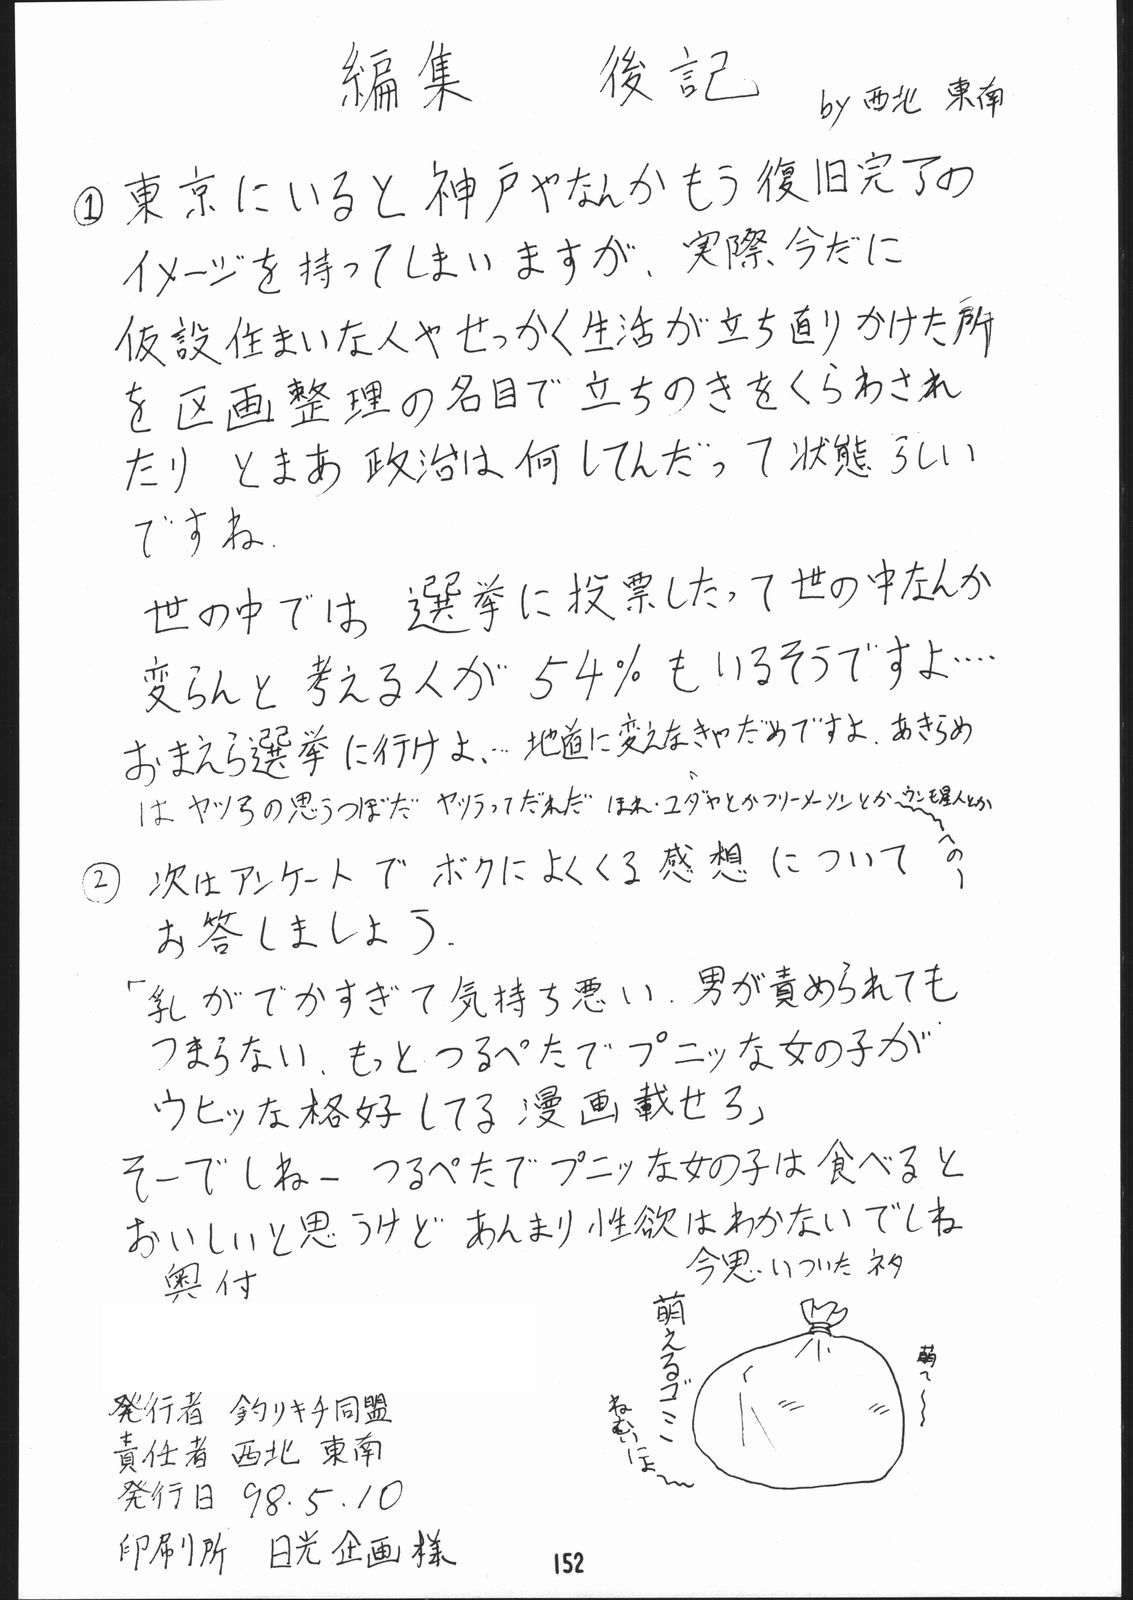 編集 後記
by 西北 東南
① 東京にいると神戸やなんかもう復旧完了の
イメージを持ってしまいますが、実際、今だに
仮設住まいな人やせっかく生活が立ち直りかけた所
を区画整理の名目で立ちのきをくらわされ
たり とまあ 政治は何してんだって状態らしい
ですね.
世の中では 選挙に投票したって世の中なんか
変らんと考える人が54%もいるそうですよ‥‥
おまえら選挙に行けよ… 地道に変えなきゃだめですよ. あきらめ
は ヤツらの思うつぼだ ヤツラってだれだ ほれ・ユダヤとかフリーメーソンとかウンモ星人とか
へのー
② 次はアンケートでボクによくくる感想について
お答しましょう.
「乳がでかすぎて気持ち悪い. 男が責められても
つまらない、もっとつるぺたでプニッな女の子が
ウヒッな格好してる漫画載せろ」
そーでしねー つるぺたでプニッな女の子は食べると
おいしいと思うけどあんまり性欲はわかないでしね
今思いついたネタ
萌えるゴミ
ねむいによ〜
萌て〜
奥付
発行者 釣りキチ同盟
責任者 西北 東南
発行日 98.5.10
印刷所 日光企画様
152